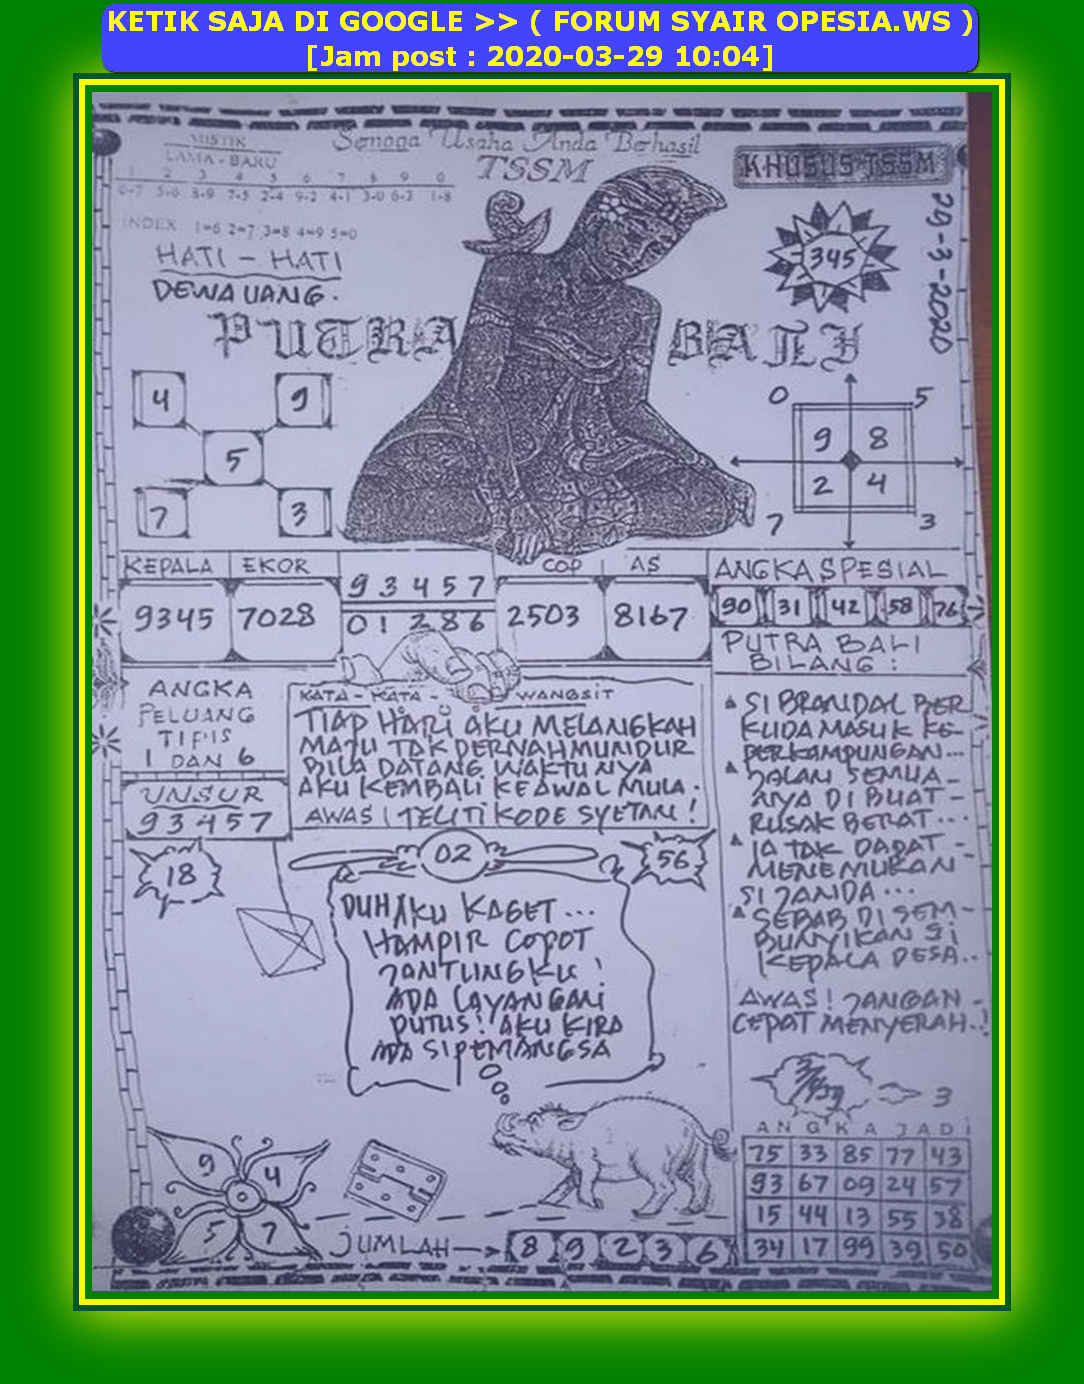 KETIK SAJA DI GOOGLE >> ( FORUM SYAIR OPESIA.WS )
[Jam post : 2020-03-29 10:04]
Semoga Usaha Anda Berhasil
TSSM
KHUSUS TSSM
MISTIK
LAMA - BARU
1 2 3 4 5 6 7 8 9 0
0-7 5-6 8-9 7-5 2-4 9-2 4-1 3-0 6-3 1-8
INDEX 1=6 2=7 3=8 4=9 5=0
29-3-2020
345
HATI - HATI
DEWA UANG.
PUTRA BALI
4 9
5
7 3
0 5
9 8
2 4
7 3
KEPALA EKOR
9345 7028
93457
01286
COP AS
2503 8167
ANGKA SPESIAL
90 31 42 58 76
PUTRA BALI
BILANG :
ANGKA
PELUANG
TIPIS
1 DAN 6
UNSUR
93457
KATA - KATA - WANGSIT
TIAP HARI AKU MELANGKAH
MAJU TAK PERNAH MUNDUR
BILA DATANG WAKTUNYA
AKU KEMBALI KEAWAL MULA.
AWAS! TELITI KODE SYETAN!
SI BRANDAL BER
KUDA MASUK KE-
PERKAMPUNGAN...
JALAN SEMUA-
NYA DI BUAT-
RUSAK BERAT...
IA TAK DAPAT-
MENEMUKAN
SI JANDA...
SEBAB DI SEM-
BUNYIKAN SI
KEPALA DESA..
AWAS! JANGAN-
CEPAT MENYERAH..!
18
02
56
DUH AKU KAGET...
HAMPIR COPOT
JANTUNGKU!
ADA LAYANGAN
PUTUS! AKU KIRA
ADA SIPEMANGSA
3
ANGKA JADI
75 33 85 77 43
93 67 09 24 57
15 44 13 55 38
34 17 99 39 50
9 4
5 7
JUMLAH 8 9 2 3 6